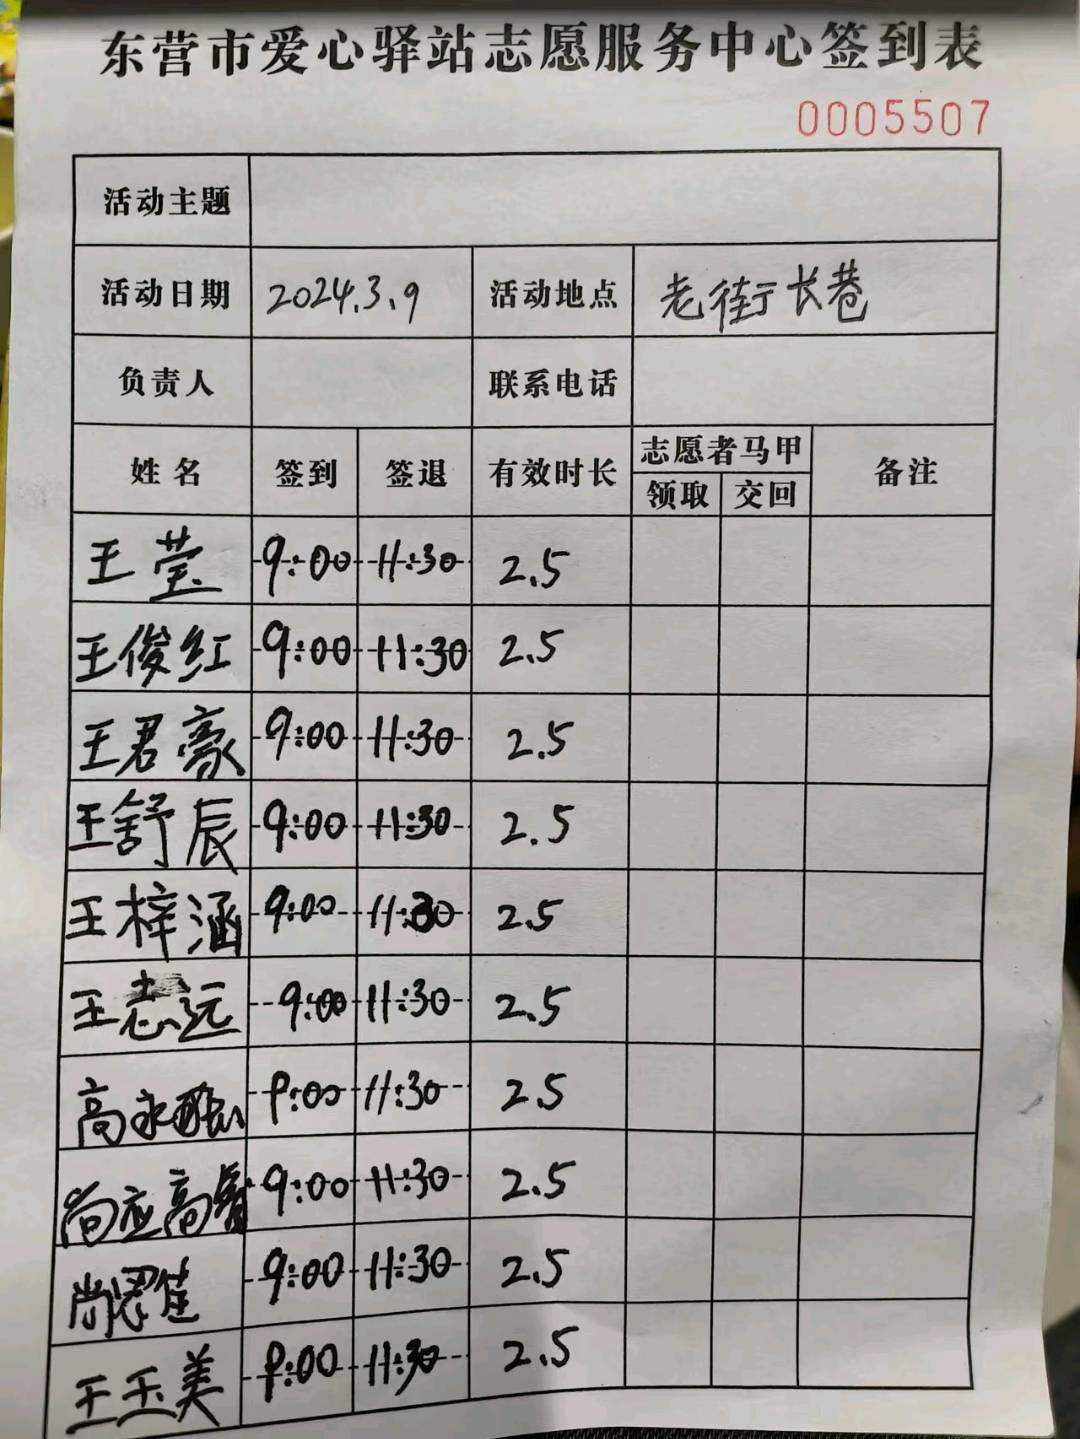 东营市爱心驿站志愿服务中心签到表
0005507
活动主题
活动日期 2024.3.9 活动地点 老街长巷
负责人 联系电话
姓名 签到 签退 有效时长 志愿者马甲 备注
领取 交回
王莹 9:00 11:30 2.5
王俊红 9:00 11:30 2.5
王君豪 9:00 11:30 2.5
王舒辰 9:00 11:30 2.5
王梓涵 9:00 11:30 2.5
王志远 9:00 11:30 2.5
高永 9:00 11:30 2.5
尚应高 9:00 11:30 2.5
尚恩佳 9:00 11:30 2.5
王玉美 9:00 11:30 2.5